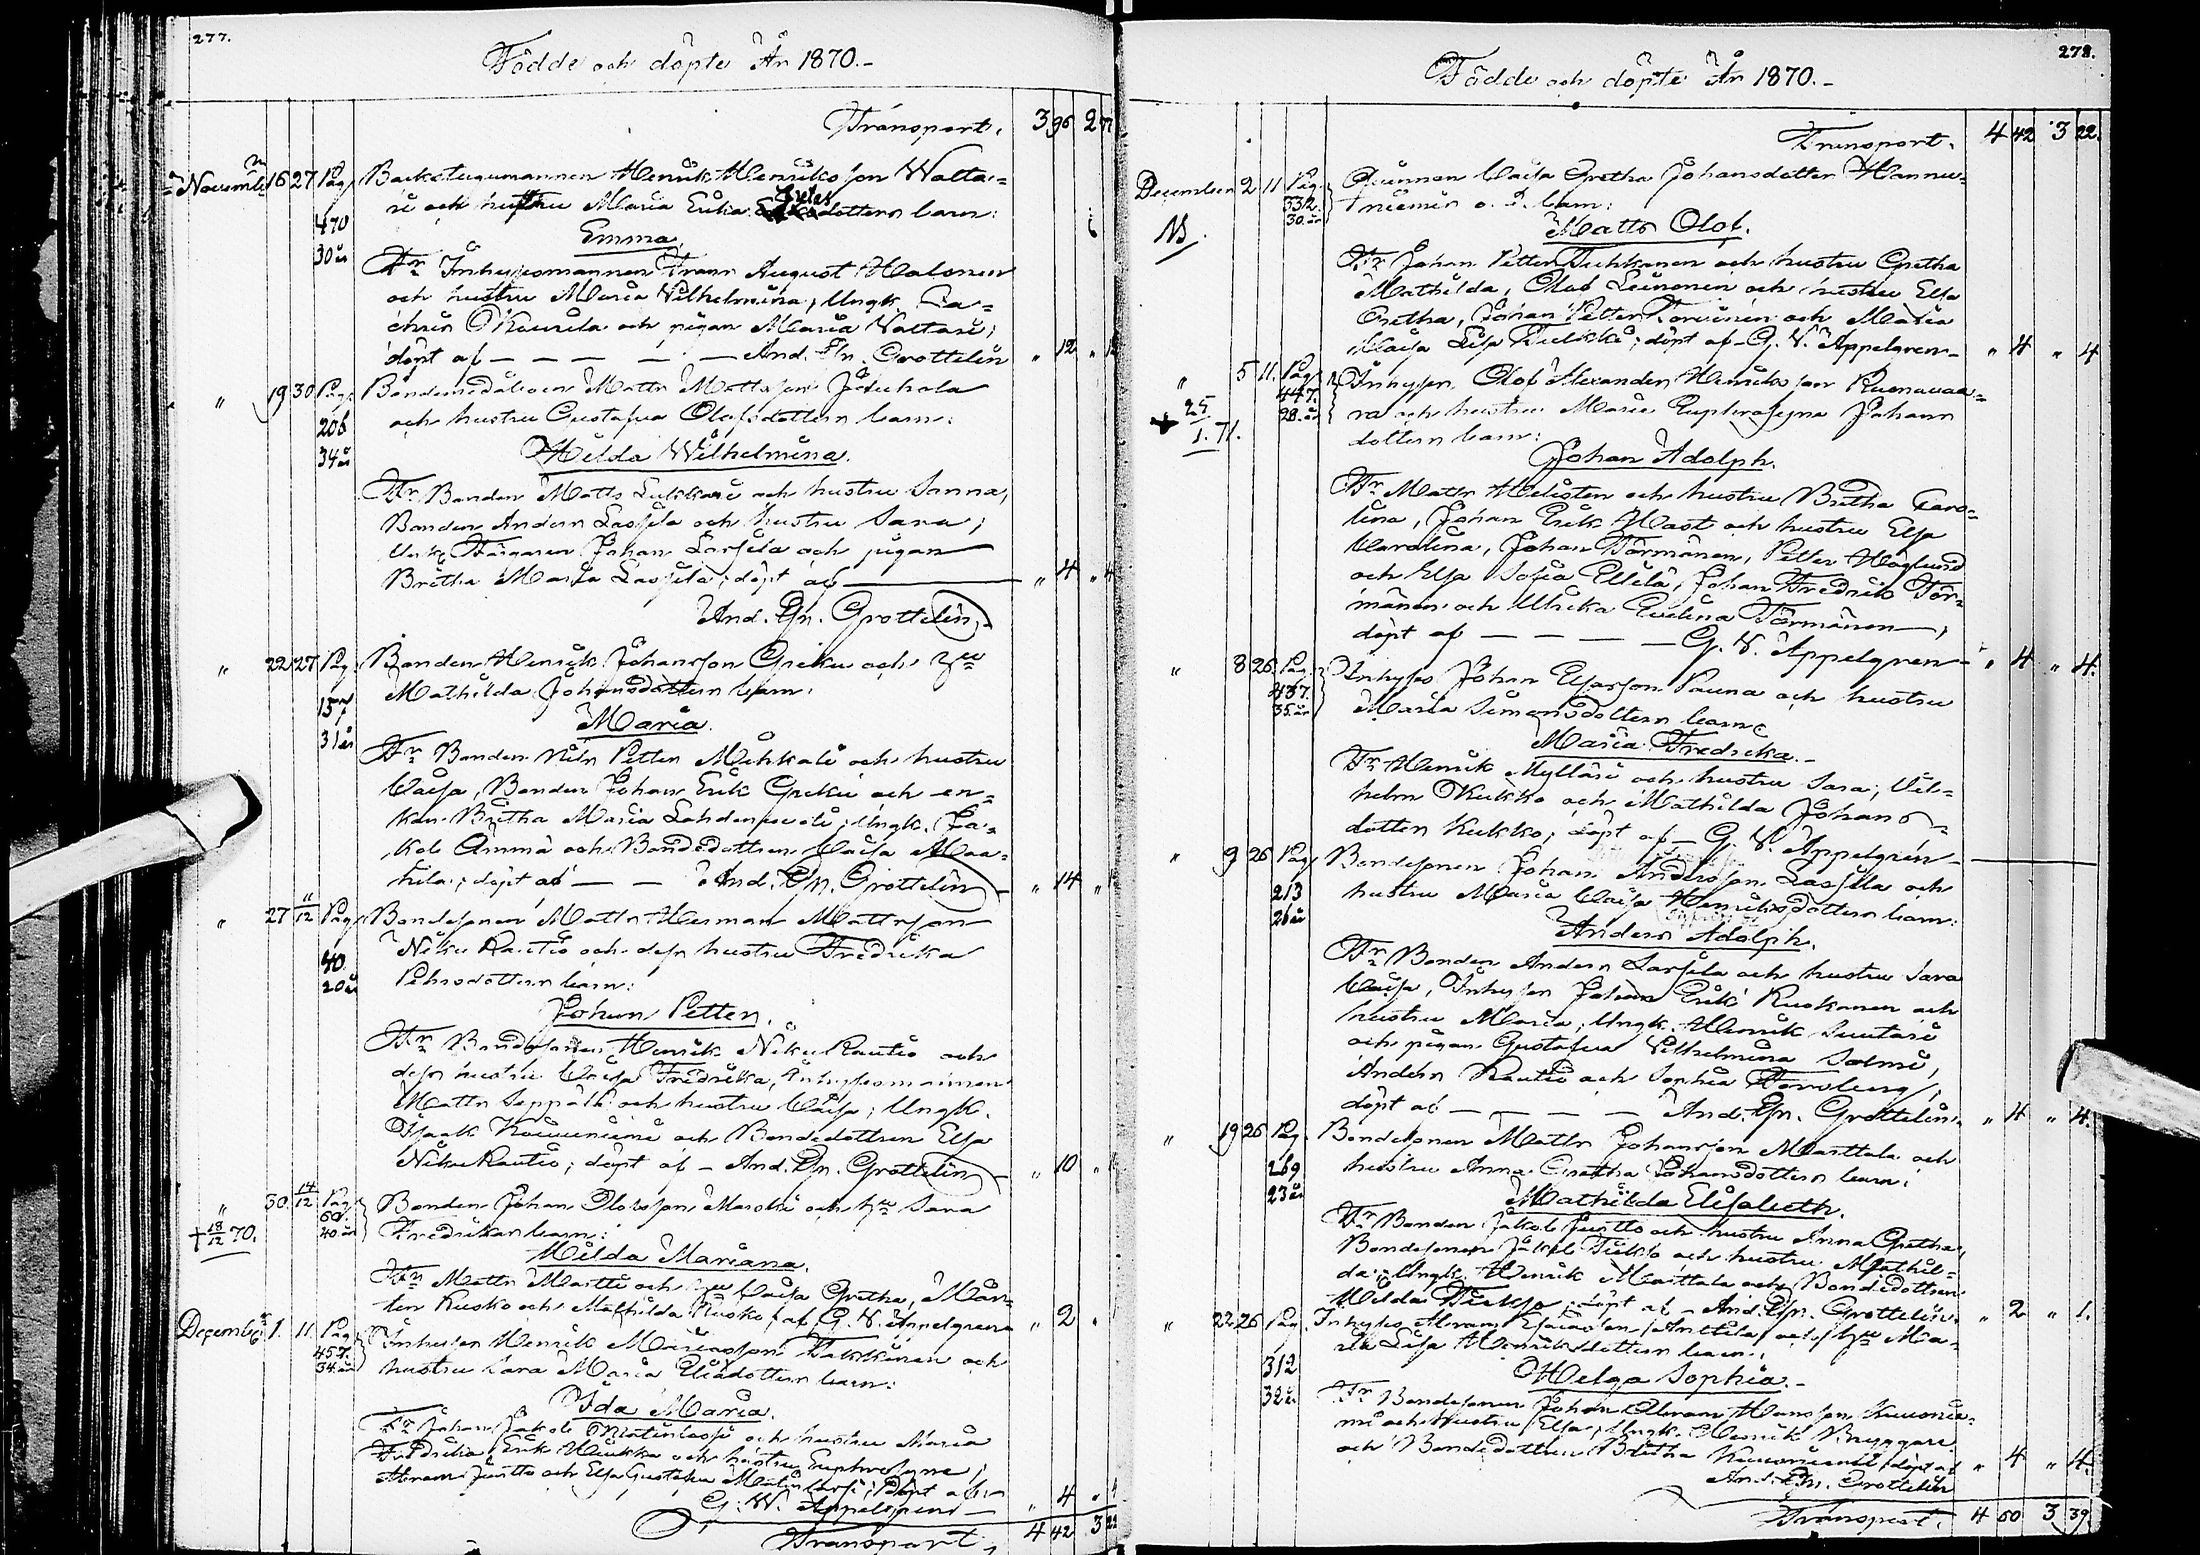 277.
Födde och döpte År 1870.-
Transport. 396 2
Novemb. 16 27 Pag. Backstugumannen Henrik Henriksson Walta-
ri och hustru Maria Erika dottern barn:
470
Emma
30 år
Fr. Inhysesmannen Frans August Halonen
och hustru Maria Vilhelmina, Ungk. Za-
chris Okurila och pigan Maria Valtari;
döpt af — — — — — And. Gr. Grottelin " 12 "
" 19 30 Pag. Matts Mattsson Juuhola
och hustru Gustafva Olofsdottern barn:
206
34 år
Hilda Wilhelmina.
Fr. Bonden Matts Lukkari och hustru Sanna,
Bonden Anders Lassila och hustru Sara;
Färgaren Johan Lassila och pigan
Britha Maria Lassila; döpt af — " 4 " 4
And. Gr. Grottelin
" 22 27 Pag. Bonden Henrik Johansson Greku och hu
Mathilda Johansdottern barn:
157
Maria.
31 år
Fr. Bonden Nils Petter Mehkali och hustru
Caisa, Bonden Johan Erik Greku och en-
kan Britha Maria Lahdenperä, Ungk. Ja-
kob Ämmä och Bondedottren Caisa Maa-
hila; döpt af — — And. Gr. Grottelin " 14 "
" 27 11/12 Pag. Bondesonen Matts Herman Mattsson
Niku Rautio och dess hustru Fredrika
40
20 år
Pehrsdottern barn:
Johan Petter.
Fr. Bondesonen Henrik Niku Rautio och
dess hustru Caisa Fredrika, Inhysesmannen
Matts Seppälä och hustru Caisa; Ungk.
Isaak Kouvaniemi och Bondedottren Elsa
Niku Rautio; döpt af - And. Gr. Grottelin " 10 "
" 30 14/12 Pag. Bonden Johan Olofsson Maski och hu Sara
60.
40 år
† 18/12 70. Fredrikas barn:
Hilda Mariana.
Fr. Matts Martti och hu Caisa Gretha, Mår-
ten Rusko och Mathilda Rusko; af G. V. Appelgren " 2
Decemb. 1. 11. Pag. Inhyses Henrik Mariasson Takkinen och
457.
34 år
hustru Sara Maria Eliædottern barn:
Ida Maria.
Fr. Johan Jakob Matinlassi och hustru Maria
Fredrika, Erik Heikka och hustru Euphrosyne,
Abram Juutto och Elsa Gustafva Matinlassi; döpt af
G. W. Appelgren — " 4
Transport. 4 42 3 22
278.
Födde och döpte År 1870.-
Transport. 4 42 3 22.
December 2 11 Pag. Qvinnan Caisa Gretha Johansdotter Hannu-
332.
30. år
niemis o. ä. barn:
Matts Olof.
Fr. Johan Petter Tuhkanen och hustru Gretha
Mathilda, Olof Leinonen och hustru Elsa
Gretha, Johan Petter Karvinen och Maria
Caisa Lisa Tuikka; döpt af G. V. Appelgren " 4 " 4
" 5 11. Pag. Inhyses. Olof Alexander Henriksson Ruonavaa-
447.
28. år
† 25/1. 71.
ra och hustru Maria Euphrosyna Johans
dottern barn:
Johan Adolph.
Fr. Matts Helisten och hustru Britha Caro-
lina, Johan Erik Hast och hustru Elsa
Carolina, Johan Törmänen, Petter Höglund
och Elsa Sofia Ellilä, Johan Fredrik Tör-
mänen och Ulrika Evelina Törmänen;
döpt af — — — — G. V. Appelgren " 4 " 4.
" 8 26 Pag. Inhyses Johan Elsasson Pauna och hustru
437.
35. år
Maria Simonsdottern barn:
Maria Fredrika.-
Fr. Henrik Mylläri och hustru Sara, Vil-
helm Kukko och Mathilda Johans-
dotter Kukko; döpt af G. V. Appelgrén
" 9 26 Pag. Bondesonen Johan Andersson Lassila och
213
26 år
hustru Maria Caisa Henriksdottern barn:
Anders Adolph.
Fr. Bonden Anders Lassila och hustru Sara
Caisa, Inhyses Johan Erik Ruokanen och
hustru Maria, Ungk. Henrik Suutari
och pigan Gustafva Vilhelmina Salmi,
Anders Rautio och Sophia Törnberg;
döpt af — — — — And. Gr. Grottelin. " 4 " 4.
" 19 26 Pag. Bondesonen Matts Johansson Marttala och
269
23 år
hustru Anna Gretha Johansdottern barn:
Mathilda Elisabeth.
Fr. Bonden Jakob Juutto och hustru Anna Gretha;
Bondesonen Jakob Tuikka och hustru Mathil-
da; Ungk. Henrik Marttala och Bondedottren
Hilda Tuikka; döpt af - And. Gr. Grottelin. " 2 " 1.
" 22 26 Pag. Inhyses Abram Esaiasson Anttila och hu Ma-
312
32 år
ria Lisa Henriksdottern barn:
Helga Sophia.-
Fr. Bondesonen Johan Abram Hansson Kuronie-
mi och hustru Elsa, Ungk. Henrik Bryggare
och Bondedottren Britha Kuroniemi; döpt af " 4 " 4.
And. Gr. Grottelin
Transport. 4 60 3 39